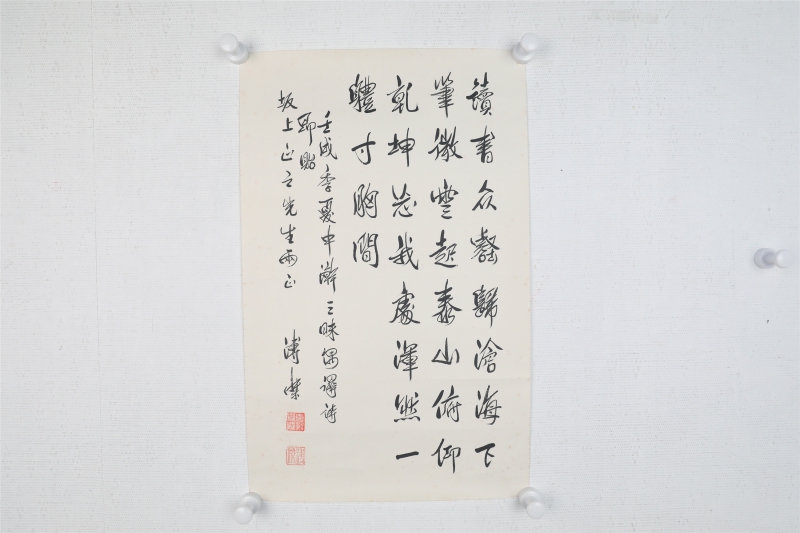 讀書众壑歸滄海下
筆微雲起泰山俯仰
乾坤忘我處渾然一
體寸胸間
壬戌季夏中澣三昧偶譯詩
即貽
坂上正之先生雨正
溥傑